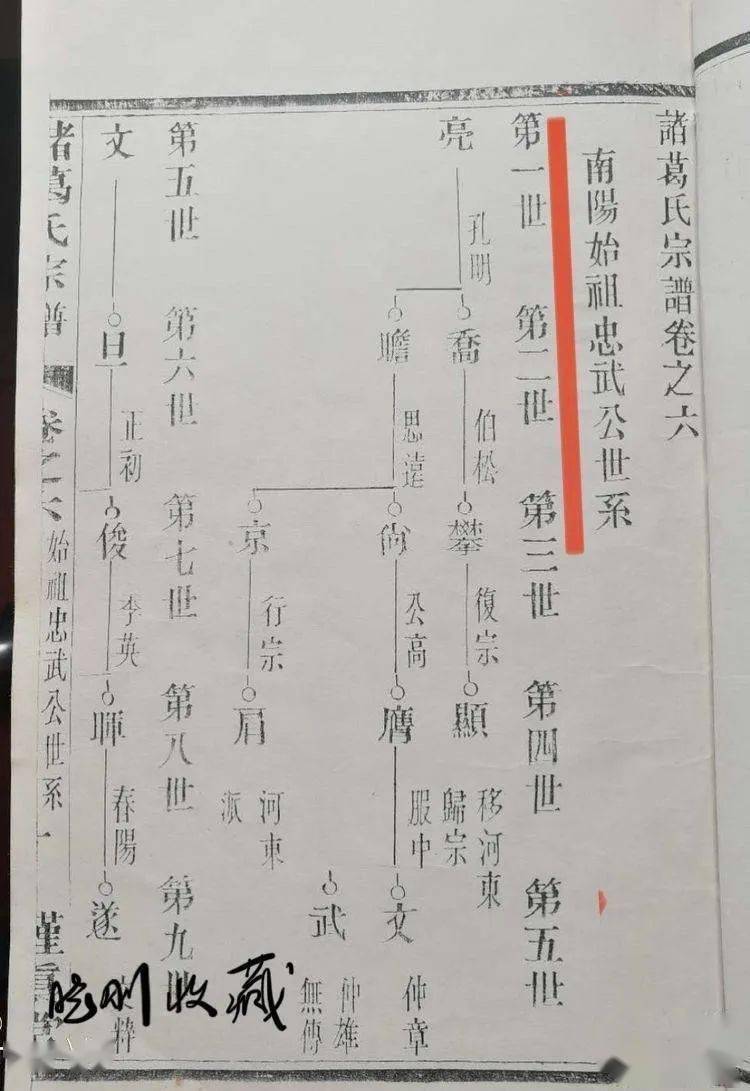 諸葛氏宗譜卷之六
南陽始祖忠武公世系
第一世 第二世 第三世 第四世 第五世
亮 孔明
喬 伯松
攀 復宗
顯 移河東歸宗
瞻 思遠
尙 公高
膺 服中
文 仲章
武 仲雄 無傳
京 行宗
肩 河東派
第五世 第六世 第七世 第八世 第九世
文
旦 正初
俊 李英
暉 春陽
遂 粹
諸葛氏宗譜 卷之六 始祖忠武公世系 一
收藏